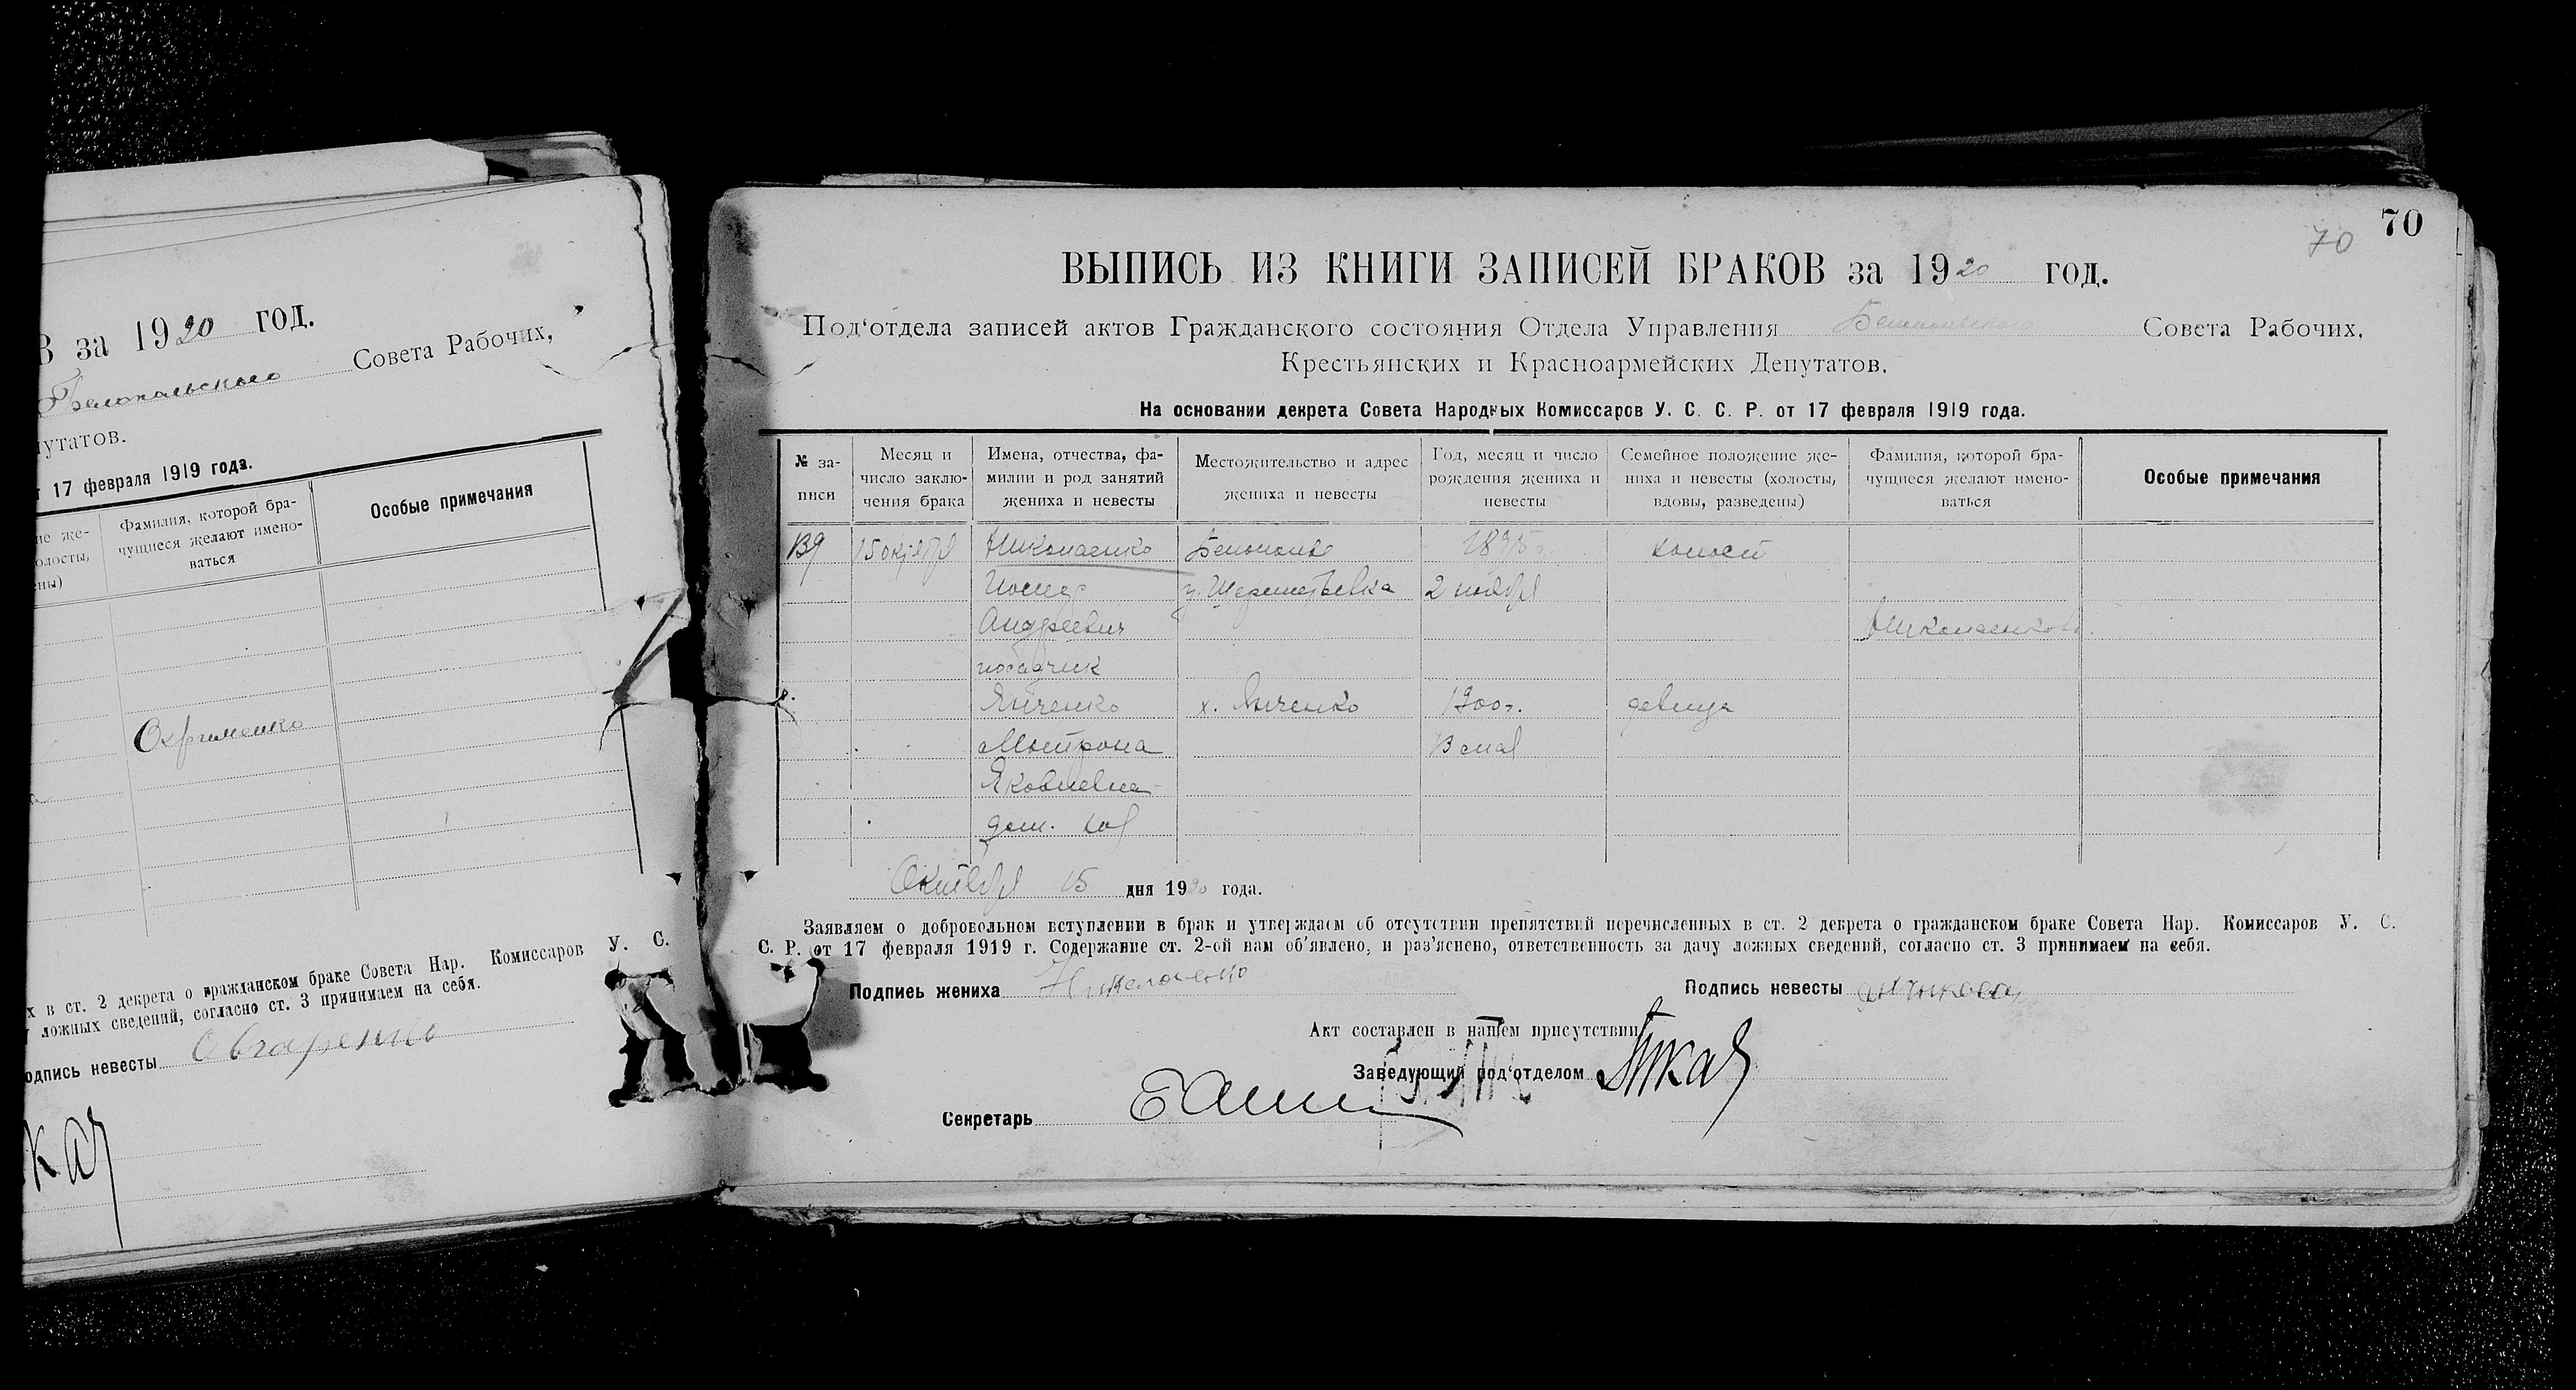 В за 1920 год.
Белопольского Совета Рабочих,
путатов.
т 17 февраля 1919 года.
ие же-
олосты,
ены)
Фамилия, которой бра-
чущиеся желают имено-
ваться
Особые примечания
Охрименко
х в ст. 2 декрета о гражданском браке Совета Нар. Комиссаров У. С.
ложных сведений, согласно ст. 3 принимаем на себя.
одпись невесты Овчаренко
70
70
ВЫПИСЬ ИЗ КНИГИ ЗАПИСЕЙ БРАКОВ за 1920 год.
Под'отдела записей актов Гражданского состояния Отдела Управления Белопольского Совета Рабочих,
Крестьянских и Красноармейских Депутатов.
На основании декрета Совета Народных Комиссаров У. С. С. Р. от 17 февраля 1919 года.
№ за-
писи
Месяц и
число заклю-
чения брака
Имена, отчества, фа-
милии и род занятий
жениха и невесты
Местожительство и адрес
жениха и невесты
Год, месяц и число
рождения жениха и
невесты
Семейное положение же-
ниха и невесты (холосты,
вдовы, разведены)
Фамилия, которой бра-
чущиеся желают имено-
ваться
Особые примечания
139 15 октября Николаенко Белополье 1895 г. холост
у. Шереметьевка 2 ноября
Андреевич
Янченко х. Янченко 1900 г. девица
Мотрона
Яковлевна
дом. хоз
Октября 15 дня 1920 года.
Заявляем о добровольном вступлении в брак и утверждаем об отсутствии препятствий перечисленных в ст. 2 декрета о гражданском браке Совета Нар. Комиссаров У. С.
С. Р. от 17 февраля 1919 г. Содержание ст. 2-ой нам об'явлено, и раз'яснено, ответственность за дачу ложных сведений, согласно ст. 3 принимаем на себя.
Подпись жениха Николаенко
Подпись невесты
Акт составлен в нашем присутствии
Заведующий под'отделом
Секретарь